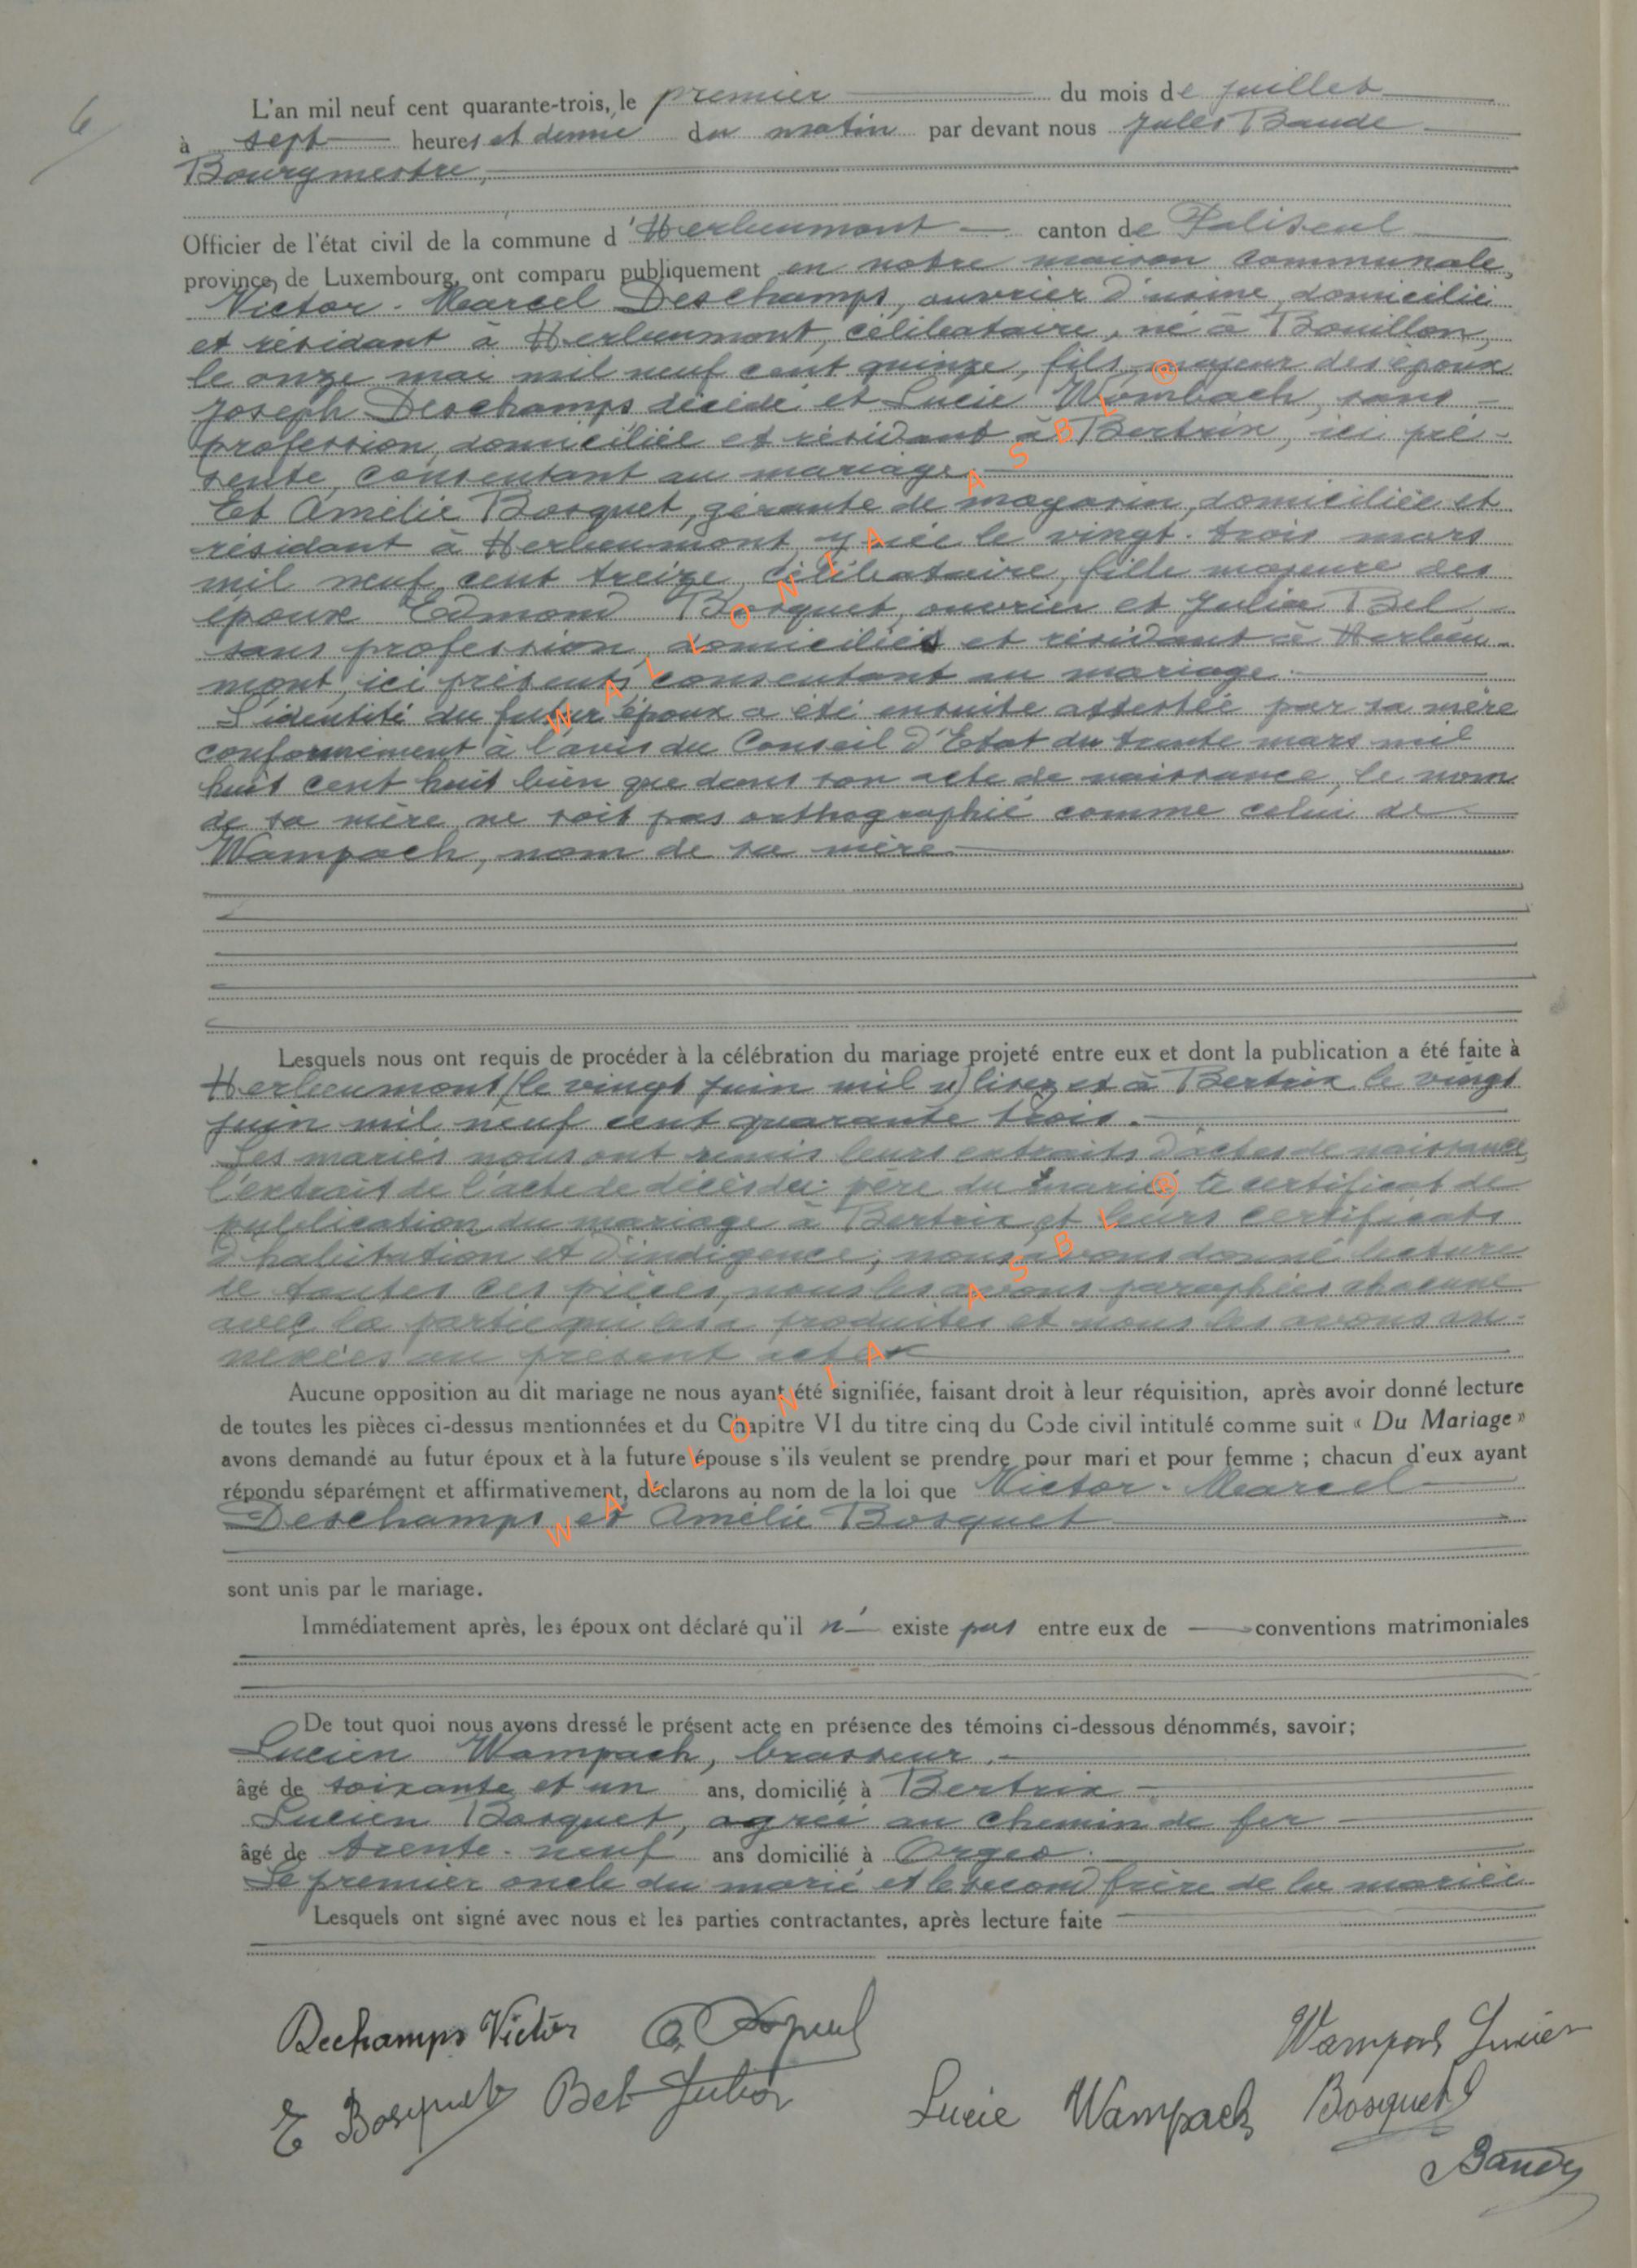 6
L'an mil neuf cent quarante-trois, le premier du mois de juillet
à sept heures et demie du matin par devant nous Jules Baude
Bourgmestre,
Officier de l'état civil de la commune d'Herbeumont canton de Paliseul
province de Luxembourg, ont comparu publiquement en notre maison communale,
Victor-Marcel Deschamps, ouvrier d'usine, domicilié
et résidant à Herbeumont, célibataire, né à Bouillon,
le onze mai mil neuf cent quinze, fils majeur des époux
Joseph Deschamps décédé et Lucie Wombach, sans
profession, domiciliée et résidant à Bertrix, ici pré-
sente, consentant au mariage.
Et Amélie Bosquet, gérante de magasin, domiciliée et
résidant à Herbeumont, y née le vingt-trois mars
mil neuf cent treize, célibataire, fille majeure des
époux Edmond Bosquet, ouvrier et Julia Bel,
sans profession, domiciliés et résidant à Herbeu-
mont, ici présents, consentant au mariage.
L'identité du futur époux a été ensuite attestée par sa mère
conformément à l'avis du Conseil d'Etat du trente mars mil
huit cent huit bien que dans son acte de naissance, le nom
de sa mère ne soit pas orthographié comme celui de
Wampach, nom de sa mère.
Lesquels nous ont requis de procéder à la célébration du mariage projeté entre eux et dont la publication a été faite à
Herbeumont (le vingt juin mil n) lisez et à Bertrix le vingt
juin mil neuf cent quarante trois.
Les mariés nous ont remis leurs extraits d'actes de naissance,
l'extrait de l'acte de décès du père du marié, le certificat de
publication du mariage à Bertrix et leurs certificats
d'habitation et d'indigence; nous avons donné lecture
de toutes ces pièces, nous les avons paraphées chacune
avec la partie qui les a produites et nous les avons an-
nexées au présent acte
Aucune opposition au dit mariage ne nous ayant été signifiée, faisant droit à leur réquisition, après avoir donné lecture
de toutes les pièces ci-dessus mentionnées et du Chapitre VI du titre cinq du Code civil intitulé comme suit « Du Mariage »
avons demandé au futur époux et à la future épouse s'ils veulent se prendre pour mari et pour femme ; chacun d'eux ayant
répondu séparément et affirmativement, déclarons au nom de la loi que Victor-Marcel
Deschamps et Amélie Bosquet
sont unis par le mariage.
Immédiatement après, les époux ont déclaré qu'il n' existe pas entre eux de conventions matrimoniales
De tout quoi nous avons dressé le présent acte en présence des témoins ci-dessous dénommés, savoir;
Lucien Wampach, brasseur,
âgé de soixante et un ans, domicilié à Bertrix
Lucien Bosquet, agréé au chemin de fer
âgé de trente-neuf ans domicilié à Orgeo.
Le premier oncle du marié et le second frère de la mariée
Lesquels ont signé avec nous et les parties contractantes, après lecture faite
Dechamps Victor Wampach Lucien
E Bosquet Bel Julia Lucie Wampach Bosquet L
Baude
WALLONIA ASBL ®
WALLONIA ASBL ®